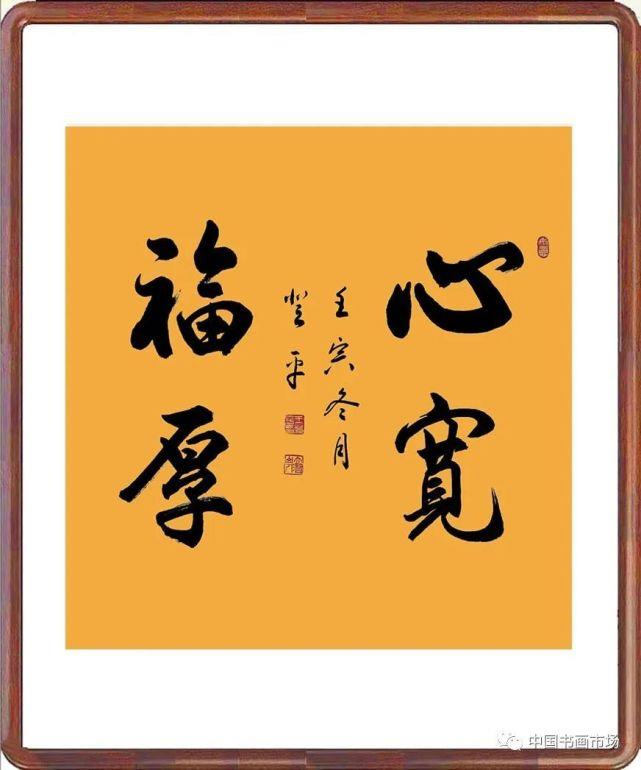 心寬
福厚
壬寅冬月
登平
中国书画市场